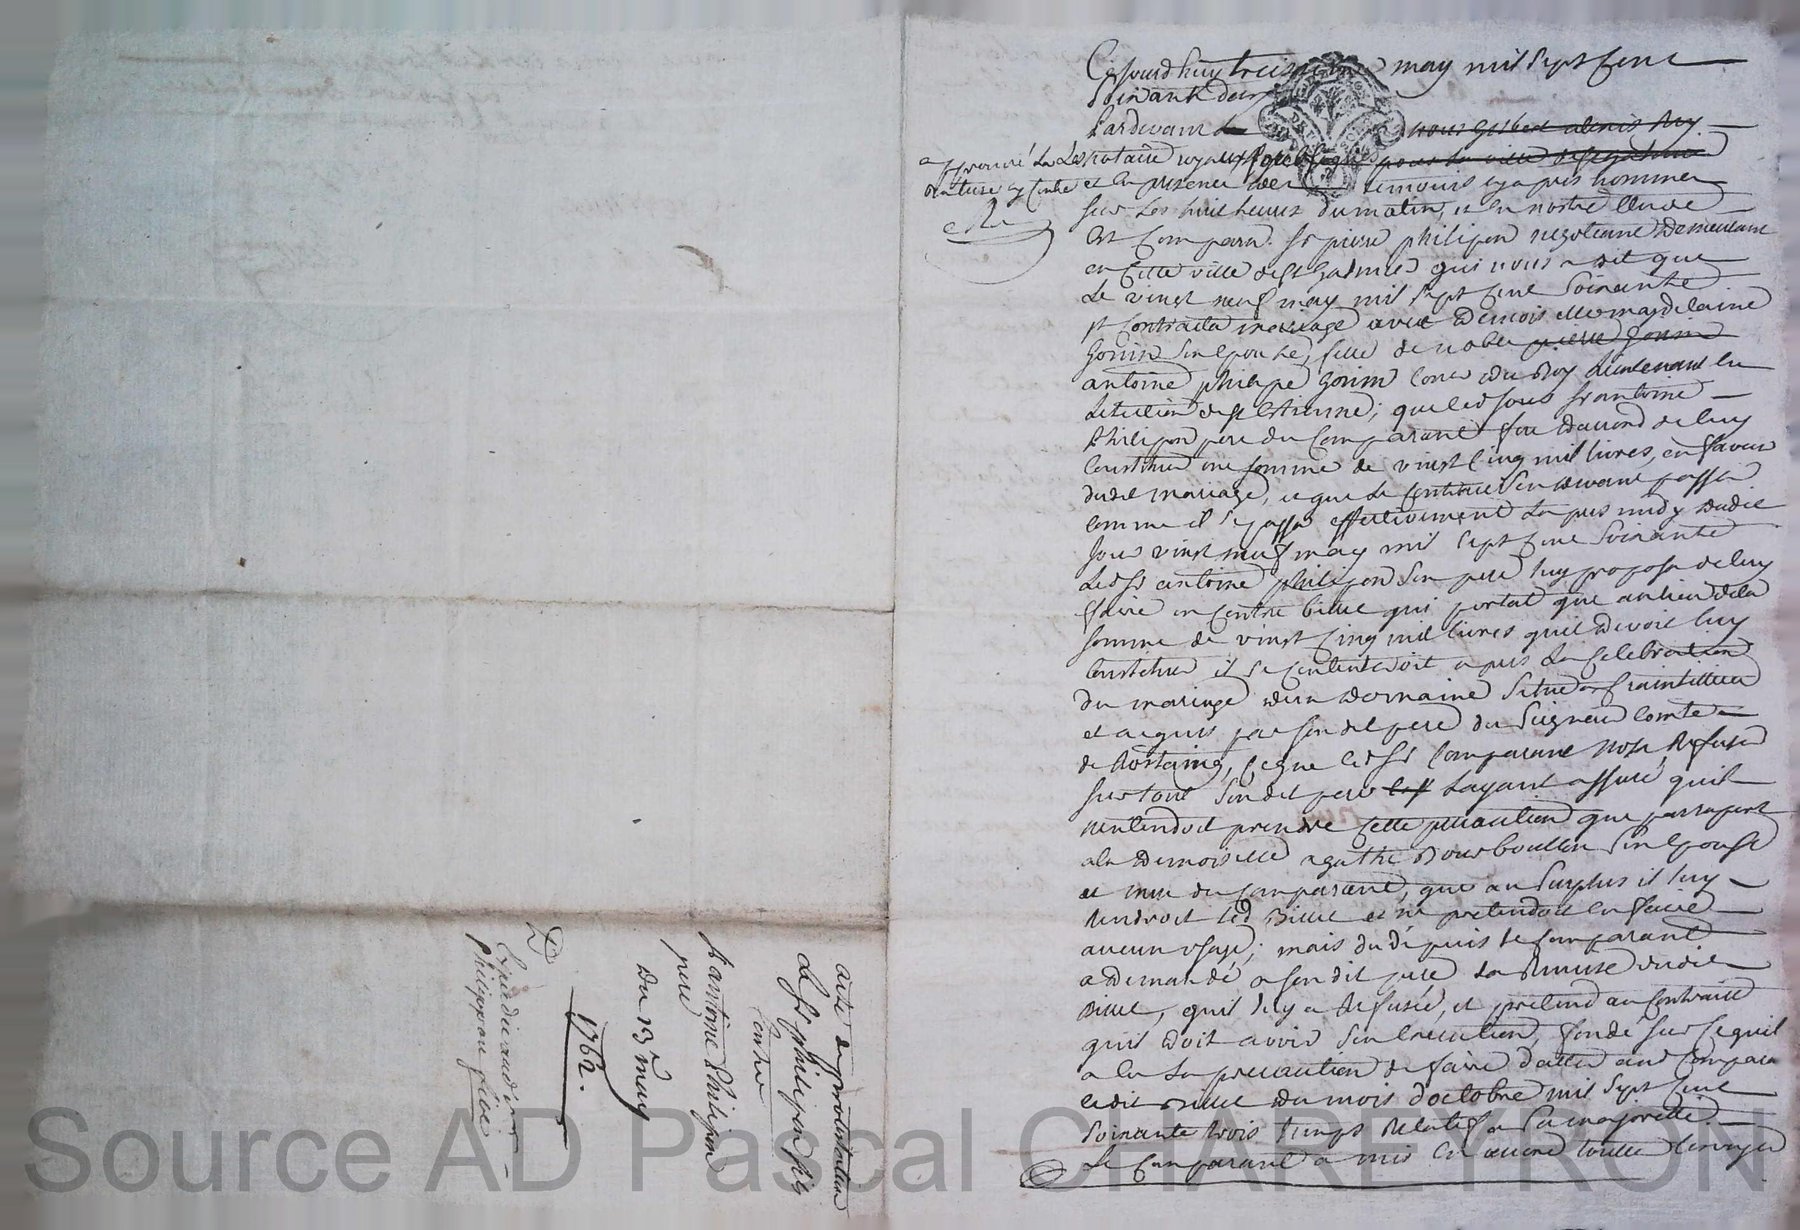 Cejourd'huy treizieme may mil sept cent
Soixante deux
Pardevant nous Gilbert alexis Rey
approuvé la Les notaire royaux
rature cy contre et en presence des temoins cy apres nommes
sur Les huit heures du matin, et en nostre Etude
Est Comparu Sr pierre philipon negotiant Demeurant
en Cette ville de St Galmier qui nous a dit que
Le vingt neuf may mil sept cent Soixante
il Contracta mariage avec Demoiselle magdelaine
Gonin Son Epouse, fille de noble pierre Gonin
antoine philipe Gonin Coner du Roy Lieutenant En
Lelection de St Etienne; que led jour Sr antoine
Philipon pere du Comparant fut Daccord de luy
Constituer une somme de vingt Cinq mil livres, en faveur
dudit mariage, et que Le Contrat Sen devant passer
comme il Se passa effectivement La pres midy dudit
Jour vingt neuf may mil sept cent Soixante
Ledsr antoine philipon Son pere luy proposa de luy
faire un Contre billet qui portat que au lieu de la
somme de vingt Cinq mil livres quil Devoit luy
Constituer il Se Contenteroit apres La Celebration
du mariage dun Domaine Situé a
et acquis par Son dit pere du Seigneur Comte
de Rostaing, Ce que ledsr Comparant nosa Refuser
sur tout Son dit pere Layant assuré quil
nentendoit prendre Cette precaution que par raport
a la Demoiselle agathe Bourboullon Son Epouse
et mere du Comparant, que au Surplus il luy
Rendroit led Billet et ne pretendoit en faire
aucun usage; mais du depuis le Comparant
a Demandé a son dit pere La Remise dudit
Billet, quil luy a Refusée, et pretend au Contraire
quil doit avoir Son Execution, fondé sur ce quil
a eu La precaution de faire datter au Compara
ledit Billet du mois d'octobre mil Sept Cent
Soixante trois temps Relatif a Sa majorité.
Le Comparant a mis En oeuvre toutte
acte de protestation
Le Sr philipon fils
Contre
Sr antoine Philipon
pere
Du 13me may
1762.
Expedié audit
Philippon fils
Source AD Pascal CHAREYRON